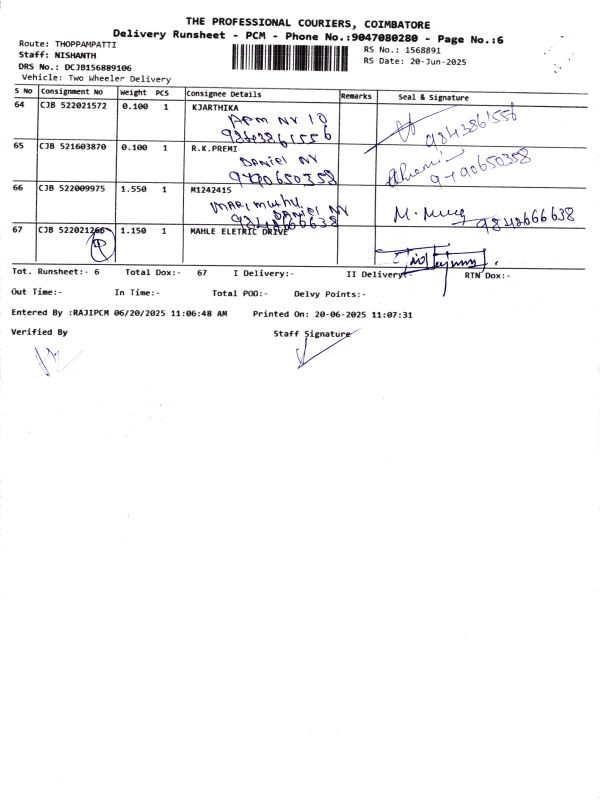 THE PROFESSIONAL COURIERS, COIMBATORE
Delivery Runsheet - PCM - Phone No.:9047080280 - Page No.:6
Route: THOPPAMPATTI
RS No.: 1568891
Staff: NISHANTH
RS Date: 20-Jun-2025
DRS No.: DCJB156889106
Vehicle: Two Wheeler Delivery
S No Consignment No Weight PCS Consignee Details Remarks Seal & Signature
64 CJB 522021572 0.100 1 KJARTHIKA
APM NV 10
9843861556 9843861556
65 CJB 521603870 0.100 1 R.K.PREMI
DANIEL NV
9790650358 9790650358
66 CJB 522009975 1.550 1 M1242415
MARIMUTHU
DANIEL NV
9848666638 9848666638
67 CJB 522021266 1.150 1 MAHLE ELETRIC DRIVE
Tot. Runsheet:- 6 Total Dox:- 67 I Delivery:- II Delivery:- RTN Dox:-
Out Time:- In Time:- Total POD:- Delvy Points:-
Entered By :RAJIPCM 06/20/2025 11:06:48 AM Printed On: 20-06-2025 11:07:31
Verified By Staff Signature